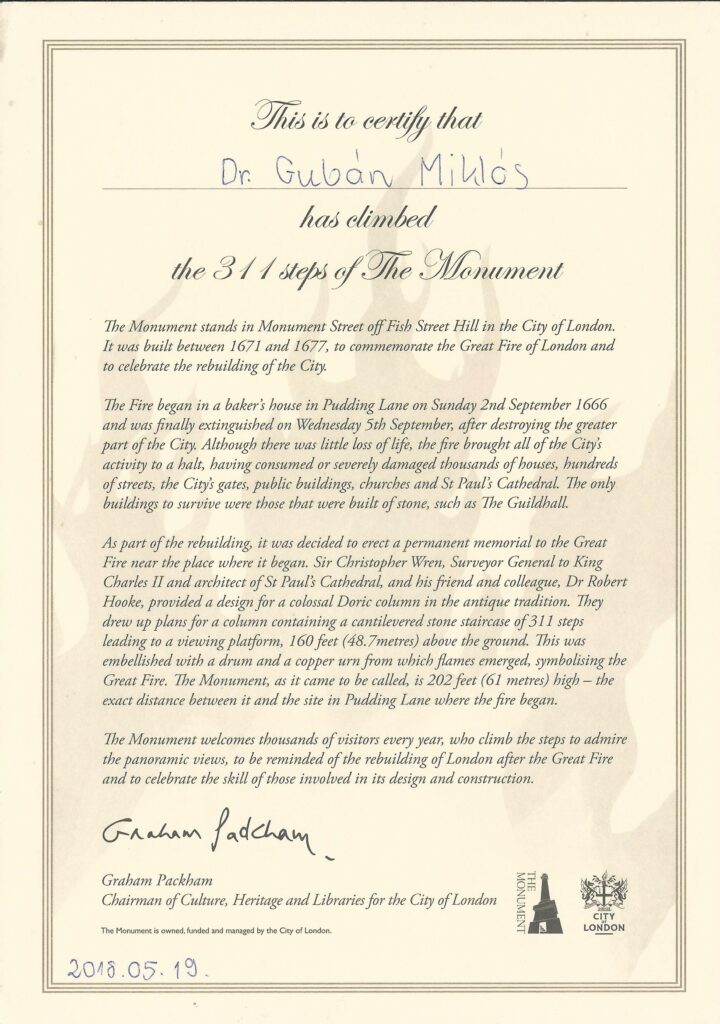 This is to certify that
Dr. Gubán Miklós
has climbed
the 311 steps of The Monument
The Monument stands in Monument Street off Fish Street Hill in the City of London.
It was built between 1671 and 1677, to commemorate the Great Fire of London and
to celebrate the rebuilding of the City.
The Fire began in a baker's house in Pudding Lane on Sunday 2nd September 1666
and was finally extinguished on Wednesday 5th September, after destroying the greater
part of the City. Although there was little loss of life, the fire brought all of the City's
activity to a halt, having consumed or severely damaged thousands of houses, hundreds
of streets, the City's gates, public buildings, churches and St Paul's Cathedral. The only
buildings to survive were those that were built of stone, such as The Guildhall.
As part of the rebuilding, it was decided to erect a permanent memorial to the Great
Fire near the place where it began. Sir Christopher Wren, Surveyor General to King
Charles II and architect of St Paul's Cathedral, and his friend and colleague, Dr Robert
Hooke, provided a design for a colossal Doric column in the antique tradition. They
drew up plans for a column containing a cantilevered stone staircase of 311 steps
leading to a viewing platform, 160 feet (48.7metres) above the ground. This was
embellished with a drum and a copper urn from which flames emerged, symbolising the
Great Fire. The Monument, as it came to be called, is 202 feet (61 metres) high – the
exact distance between it and the site in Pudding Lane where the fire began.
The Monument welcomes thousands of visitors every year, who climb the steps to admire
the panoramic views, to be reminded of the rebuilding of London after the Great Fire
and to celebrate the skill of those involved in its design and construction.
Graham Packham
Graham Packham
Chairman of Culture, Heritage and Libraries for the City of London
The Monument is owned, funded and managed by the City of London.
THE
MONUMENT
CITY
OF
LONDON
2018.05.19.